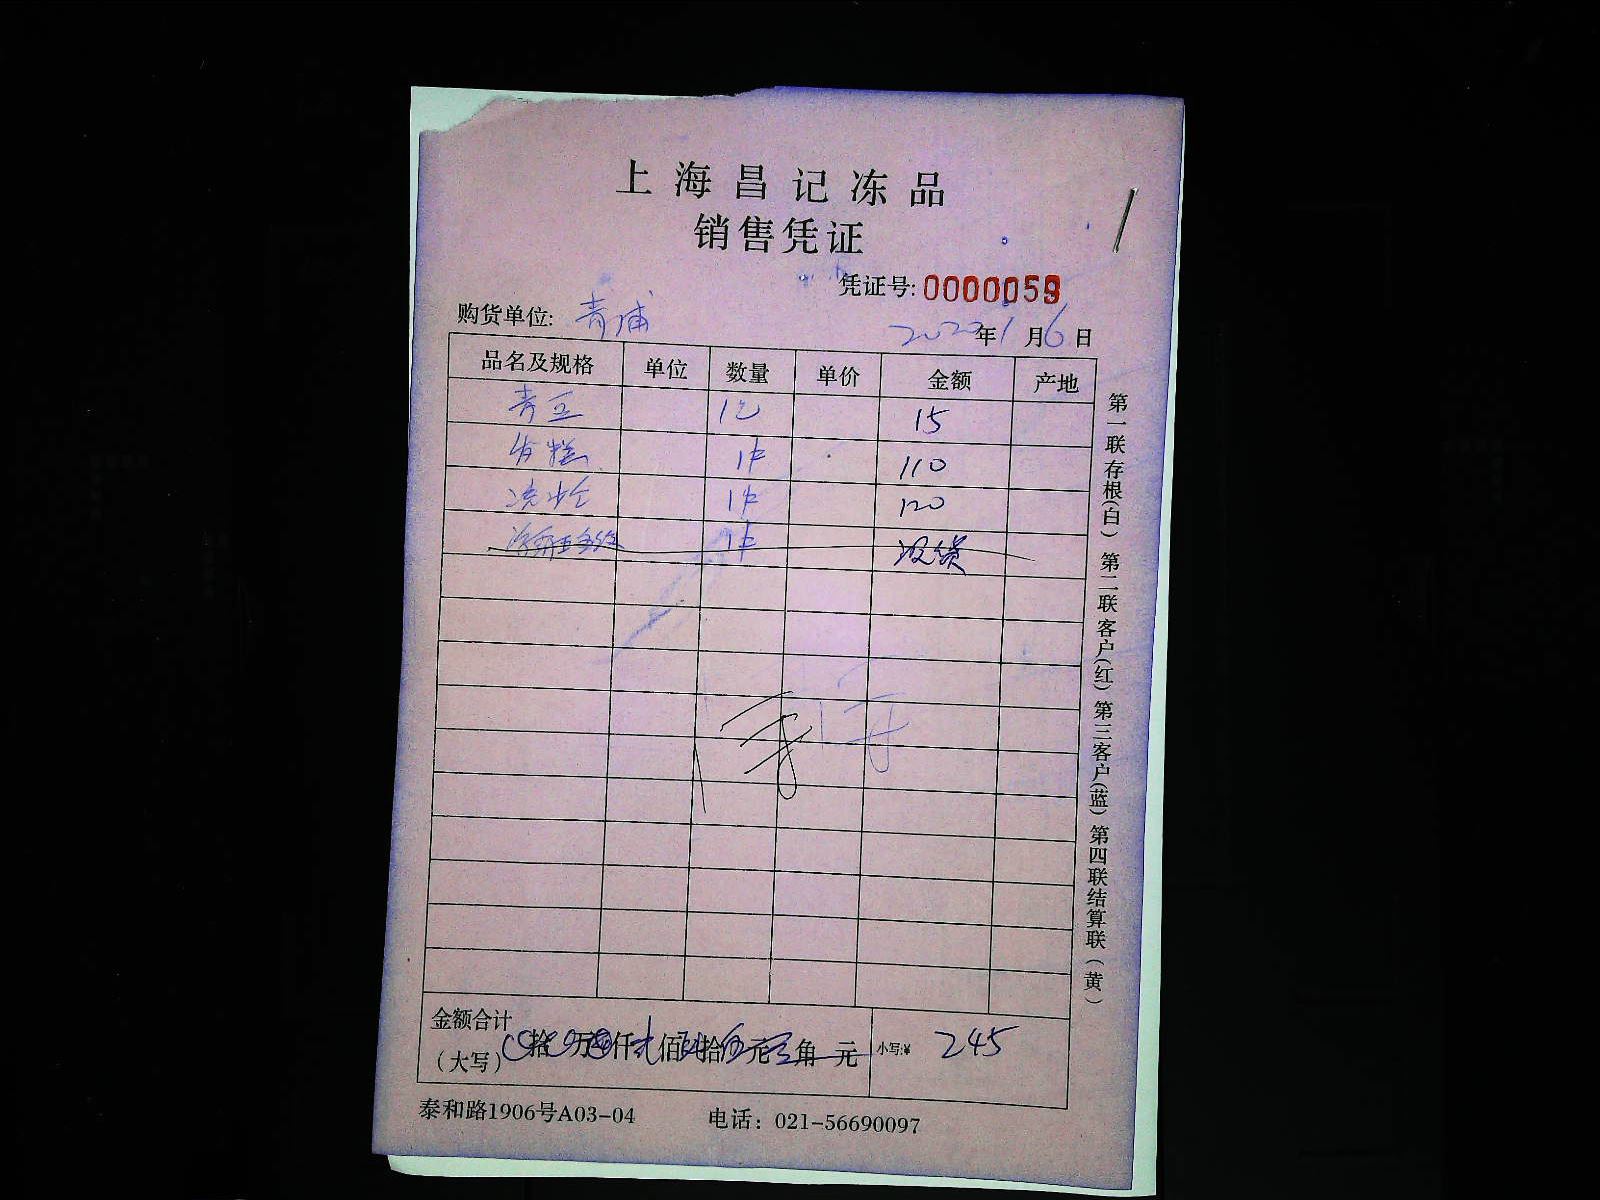 上海昌记冻品
销售凭证
凭证号: 0000059
购货单位: 青浦
2022年1月6日
品名及规格 单位 数量 单价 金额 产地
青豆 1包 15
发糕 1件 110
1件 120
1件 没货
金额合计
(大写) 拾 万 仟 贰 佰 拾 伍 元 角 元 小写:¥ 245
泰和路1906号A03-04 电话: 021-56690097
第一联存根(白) 第二联客户(红) 第三客户(蓝) 第四联结算联(黄)